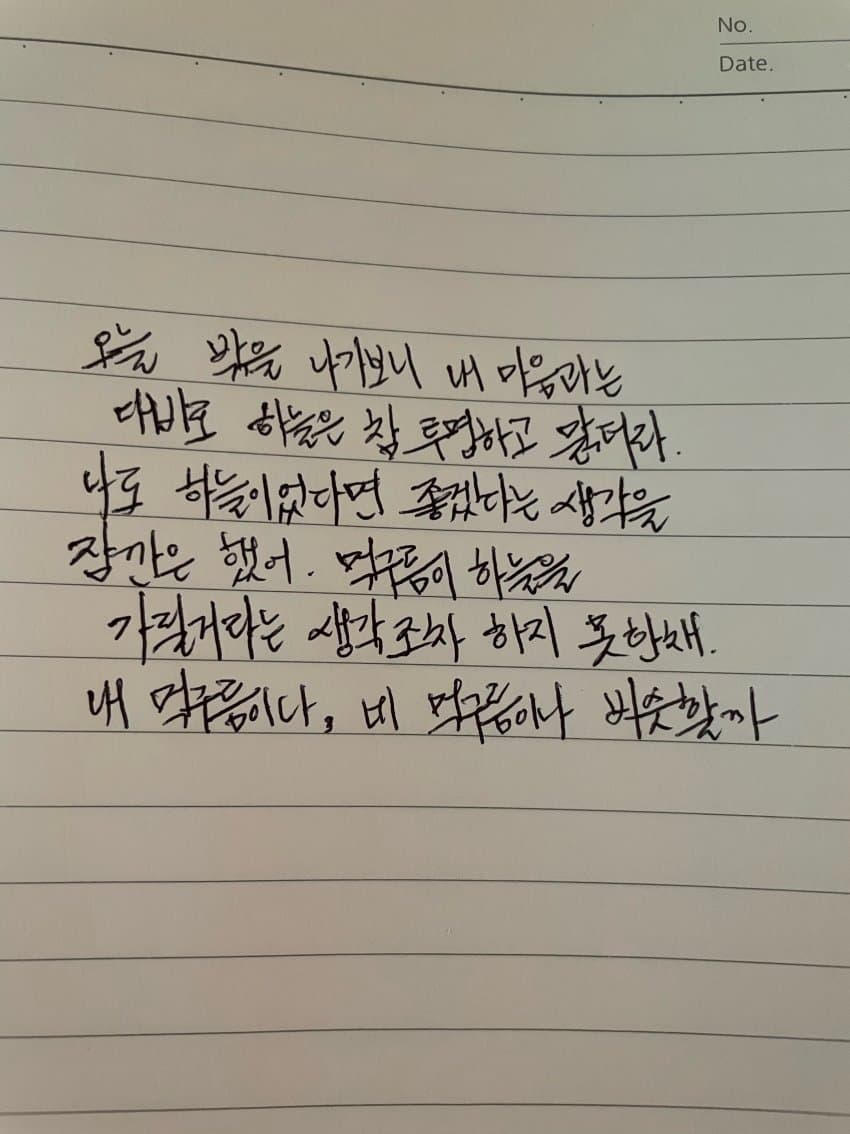 No.
Date.
오늘 밖을 나가보니 내 마음과는
대비로 하늘은 참 투명하고 맑더라.
나도 하늘이었다면 좋겠다는 생각을
잠깐은 했어. 먹구름이 하늘을
가릴거라는 생각조차 하지 못한채.
내 먹구름이다, 비 먹구름이나 비슷할까